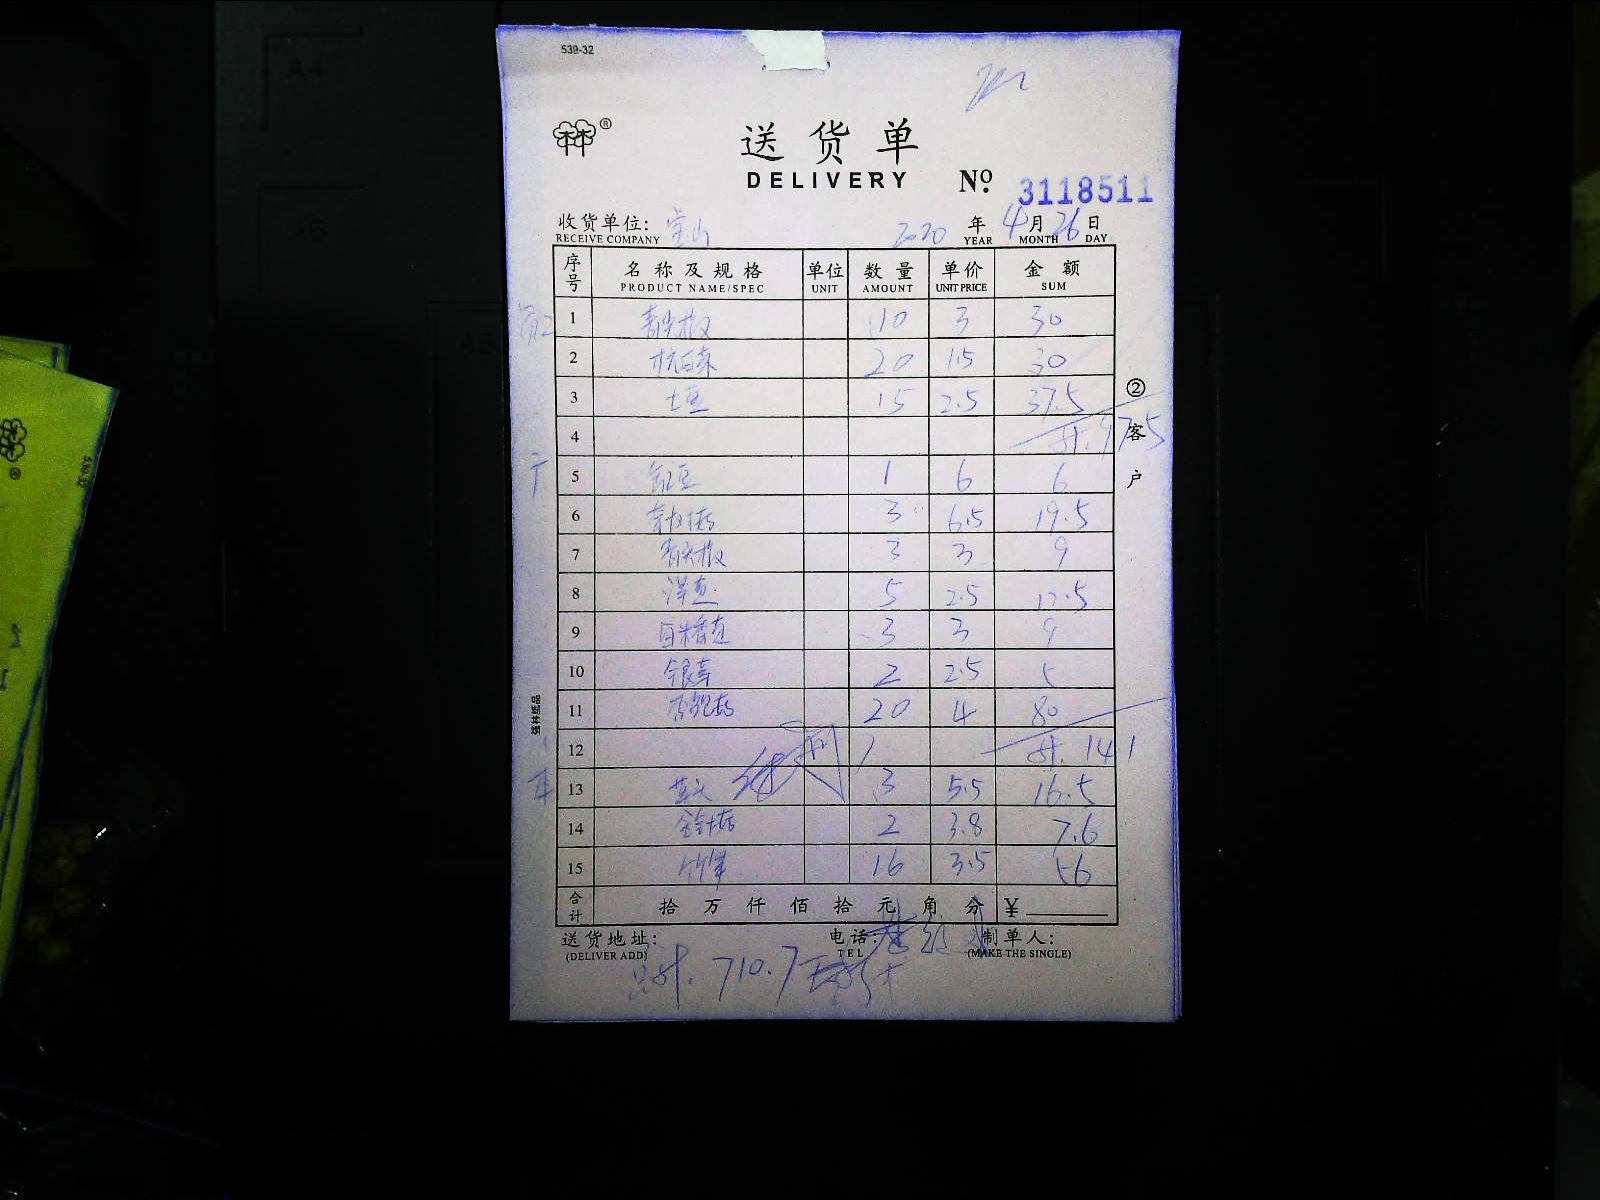 539-32
送货单
DELIVERY
№ 3118511
收货单位: 宝山 2020 年 4 月 26 日
RECEIVE COMPANY YEAR MONTH DAY
序号 名称及规格 单位 数量 单价 金额
PRODUCT NAME/SPEC UNIT AMOUNT UNIT PRICE SUM
1 青尖椒 10 3 30
2 杭白菜 20 1.5 30
3 土豆 15 2.5 37.5
4 计. 97.5
5 豇豆 1 6 6
6 3 6.5 19.5
7 青尖椒 3 3 9
8 洋葱 5 2.5 12.5
9 3 3 9
10 银芽 2 2.5 5
11 杏鲍菇 20 4 80
12 计. 141
13 3 5.5 16.5
14 金针菇 2 3.8 7.6
15 16 3.5 56
合计 拾万仟佰拾元角分 ¥
送货地址: 电话: 制单人:
(DELIVER ADD) TEL (MAKE THE SINGLE)
总计. 710.7
②客户
强林纸品